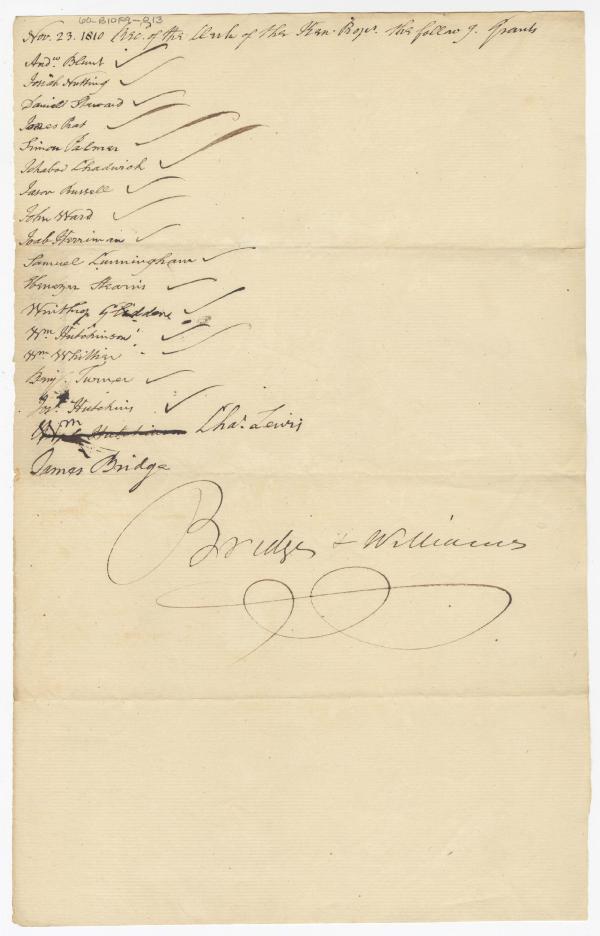 60-B10F9-913
Nov. 23. 1810 Rec. of the Clerk of the Ken. Propr. the follow g. Grants
Andw. Blunt
Josiah Nutting
Daniel Steward
James Prat
Simon Palmer
Ichabod Chadwick
Jason Russell
John Ward
Joab Herriman
Samuel Cunningham
Ebenezer Stearns
Winthop Glidden
Wm. Hutchinson
Wm. Whittier
Benj. Turner
Jos. Hutchins
Wm Hutchinson Chas. Lewis
James Bridge
Bridge & Williams